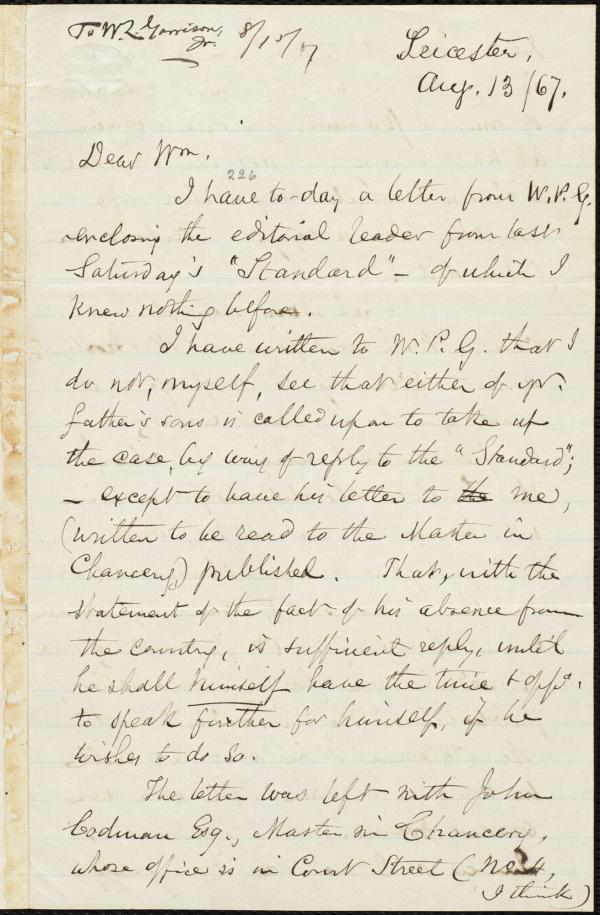 To W. L. Garrison, Jr. 8/13/67
Leicester,
Aug. 13/67.
Dear Wm.
226
I have to-day a letter from W. P. G.
enclosing the editorial leader from last
Saturday's "Standard" - of which I
knew nothing before.
I have written to W. P. G. that I
do not, myself, see that either of yr.
father's sons is called upon to take up
the case, by way of reply to the "Standard";
- except to have his letter to the me,
(written to be read to the Master in
Chancery) published. That, with the
statement of the fact of his absence from
the country, is sufficient reply, until
he shall himself have the time & oppy.
to speak further for himself, if he
wishes to do so.
The letter was left with John
Codman Esq., Master in Chancery,
whose office is in Court Street (No 4,
I think)